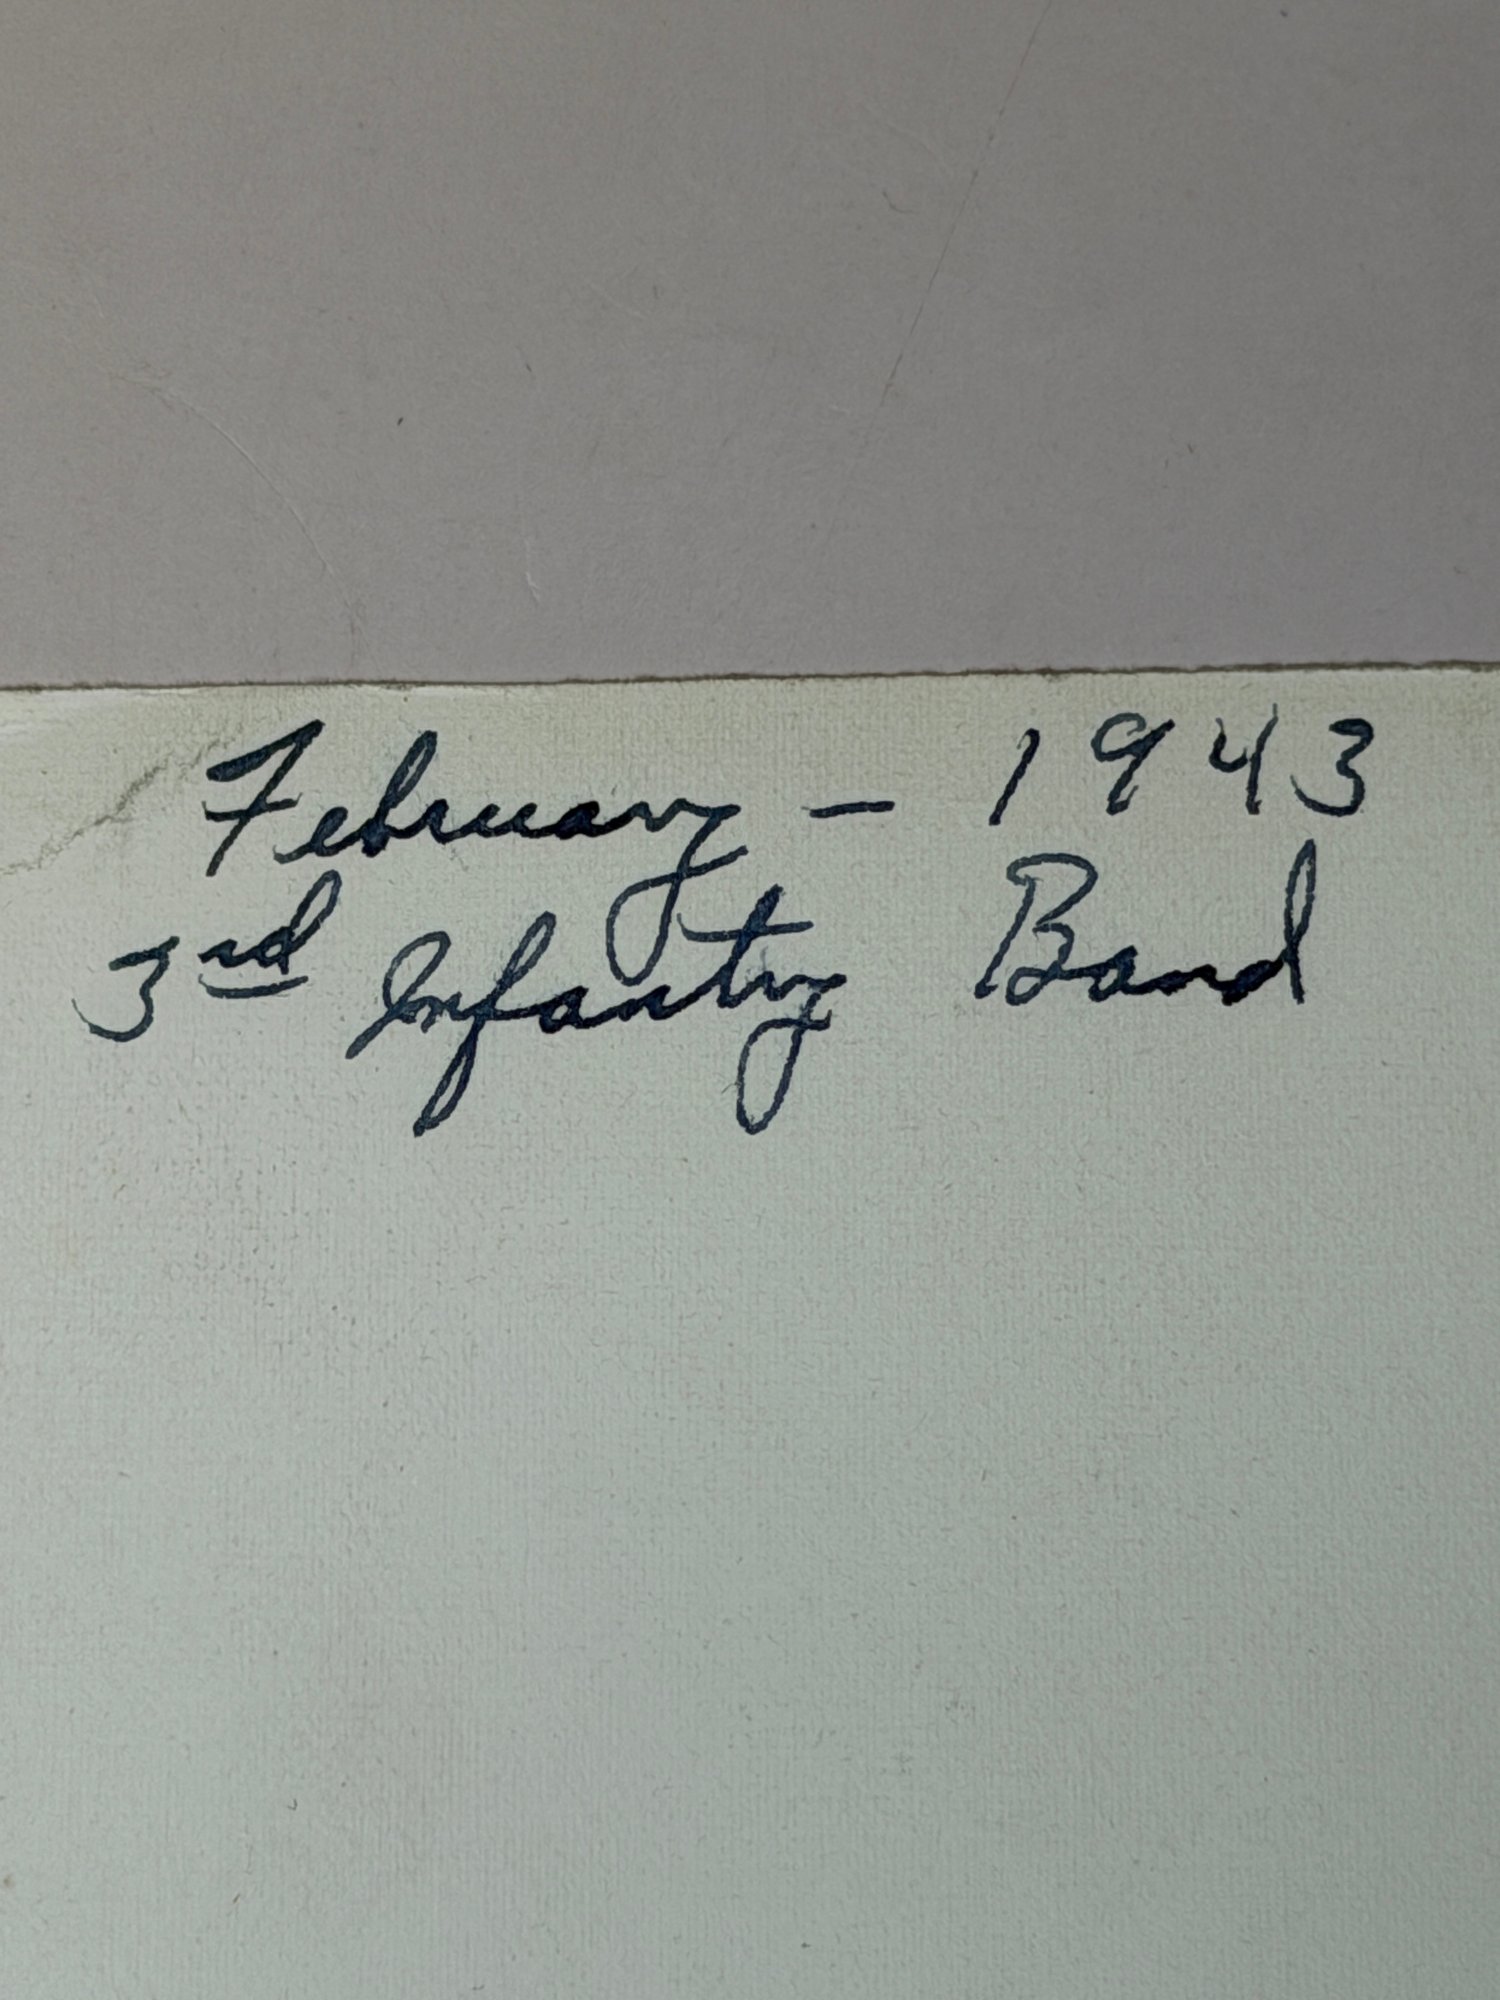 February - 1943
3rd Infantry Band